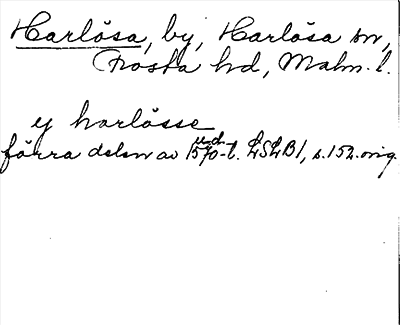 Harlösa, by, Harlösa sn,
Frosta hd, Malm. l.
y harlösse
u.d.
förra delen av 1570-t. LSLB1, s. 152. orig.